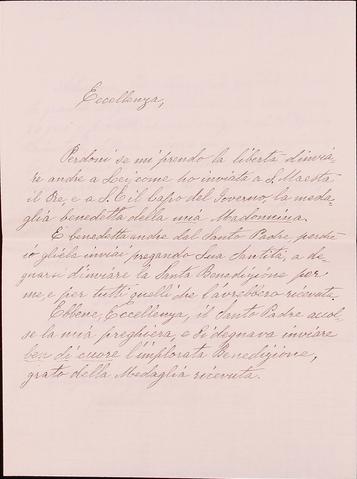 Eccellenza,
Perdoni se mi prendo la libertà d'invia-
re anche a Lei, come ho inviata a S. Maestà
il Re, e a S. E. il Capo del Governo, la meda-
glia benedetta della mia Madonnina.
È benedetta anche dal Santo Padre, perchè
io gliela inviai pregando Sua Santità, a de-
gnarsi d'inviare la Santa Benedizione per
me, e per tutti quelli che l'avrebbero ricevuta.
Ebbene, Eccellenza, il Santo Padre accol-
se la mia preghiera, e si degnava inviare
ben di cuore l'implorata Benedizione,
grato della Medaglia ricevuta.